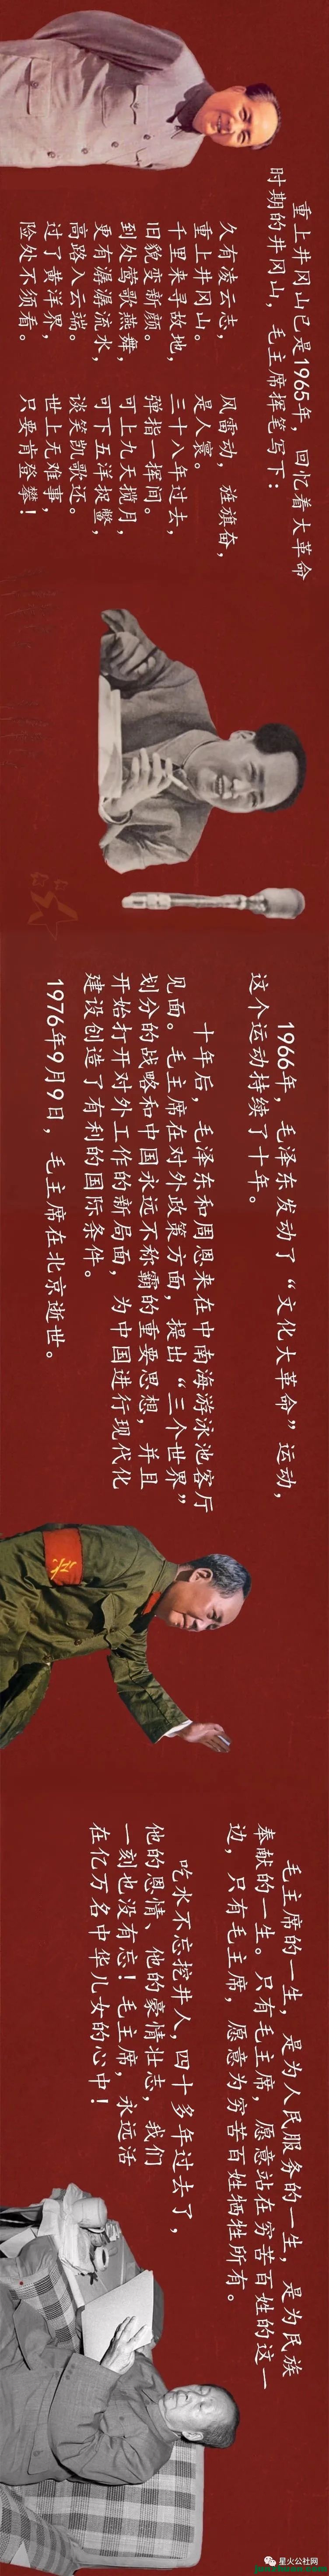 重上井冈山已是1965年，回忆着大革命
时期的井冈山，毛主席挥笔写下：
久有凌云志，
重上井冈山。
千里来寻故地，
旧貌变新颜。
到处莺歌燕舞，
更有潺潺流水，
高路入云端。
过了黄洋界，
险处不须看。
风雷动，旌旗奋，
是人寰。
三十八年过去，
弹指一挥间。
可上九天揽月，
可下五洋捉鳖，
谈笑凯歌还。
世上无难事，
只要肯登攀！
1966年，毛泽东发动了“文化大革命”运动，
这个运动持续了十年。
十年后，毛泽东和周恩来在中南海游泳池客厅
见面。毛主席在对外政策方面，提出“三个世界”
划分的战略和中国永远不称霸的重要思想，并且
开始打开对外工作的新局面，为中国进行现代化
建设创造了有利的国际条件。
1976年9月9日，毛主席在北京逝世。
毛主席的一生，是为人民服务的一生，是为民族
奉献的一生。只有毛主席，愿意站在穷苦百姓的这一
边，只有毛主席，愿意为穷苦百姓牺牲所有。
吃水不忘挖井人，四十多年过去了，
他的恩情、他的豪情壮志，我们
一刻也没有忘！毛主席，永远活
在亿万名中华儿女的心中！
星火公社网